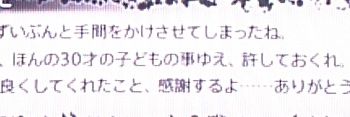 ずいぶんと手間をかけさせてしまったね。
、ほんの30才の子どもの事ゆえ、許しておくれ。
良くしてくれたこと、感謝するよ……ありがとう